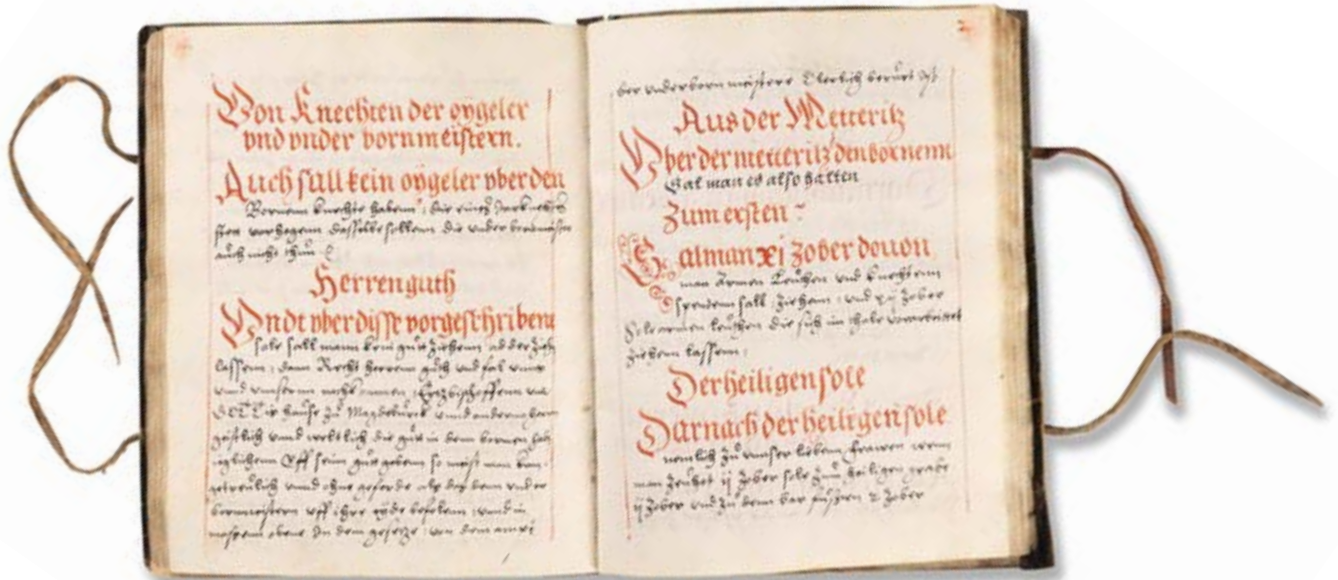 Von Knechten der oygeler
vnd vnder bornmeistern.
Auch sall kein oygeler vber den
Bornenn knechte habenn, die eines
sten dasselbe sollenn die vnder bornmeister
auch nicht thun
Herrenguth
Vndt vber disse vorgeschribene
sole sall mann kein gutt ziehenn
lassenn, dann Recht herrenn guth vnd
vnd vnserm Ertzbischoffenn
hause zu Magdeburck vnnd andernn herrn
geistlich vnnd weltlich die gutt in denn bornen
iglichem Uff sein gutt gebenn so
getreulich vnnd ohne geferde als das denn vnder
bornmeistern vff ihre eyde befolenn, vnnd in
obene In dem gesetze, von dem
der vnderborn meistere Clerlich berurt ist
Aus der Metteritz
Vber der metteritz den bornenn
Sal man es also halten
Zum ersten
Sal man xi zober douon
man Armen Leuthen vnd knechtenn
spendenn sall, ziehenn, vnd xij zober
Sole armen leuthen die sich im thale verarbeittet
ziehenn lassenn,
Der heiligen sole
Darnach der heiligen sole
nemlich zu vnser lieben frawen wenn
man zeuhet ij zober sole zum heiligen grabe
ij zober vnd zu denn barfussern 2 zober